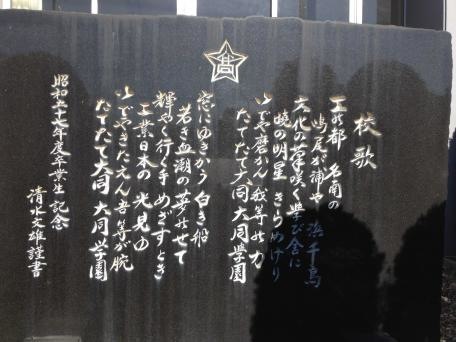 高
校歌
工の都 名南の
鳴尾が浦や 浜千鳥
文化の華咲く 学び舎に
暁の明星 きらめけり
いでや磨かん 我等の力
たてたて大同 大同学園
窓にゆきかう 白き船
若き血潮の 夢のせて
輝やく行く手 めざすとき
工業日本の 光見ゆ
いでやきたえん 吾等が腕
たてたて大同 大同学園
昭和五十七年度卒業生記念
清水文雄謹書